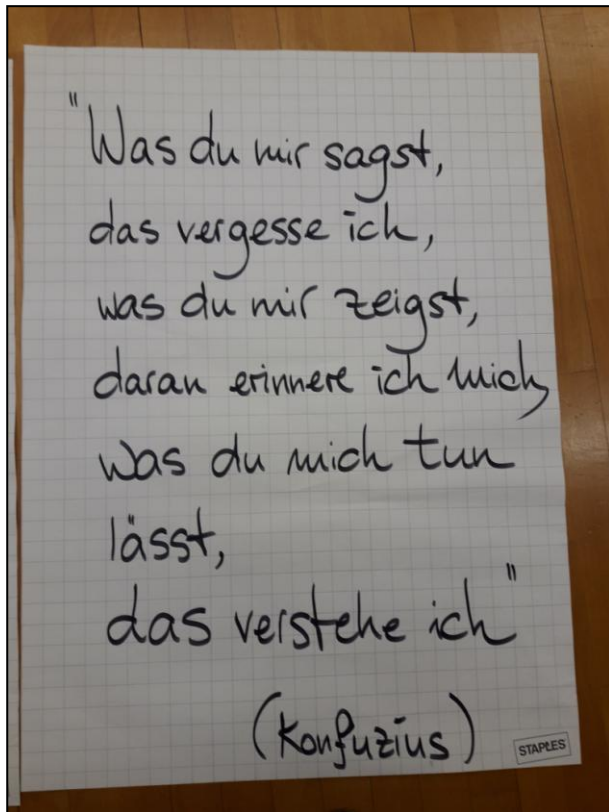 "Was du mir sagst,
das vergesse ich,
was du mir zeigst,
daran erinnere ich mich,
was du mich tun
lässt,
das verstehe ich"
(Konfuzius)
STAPLES